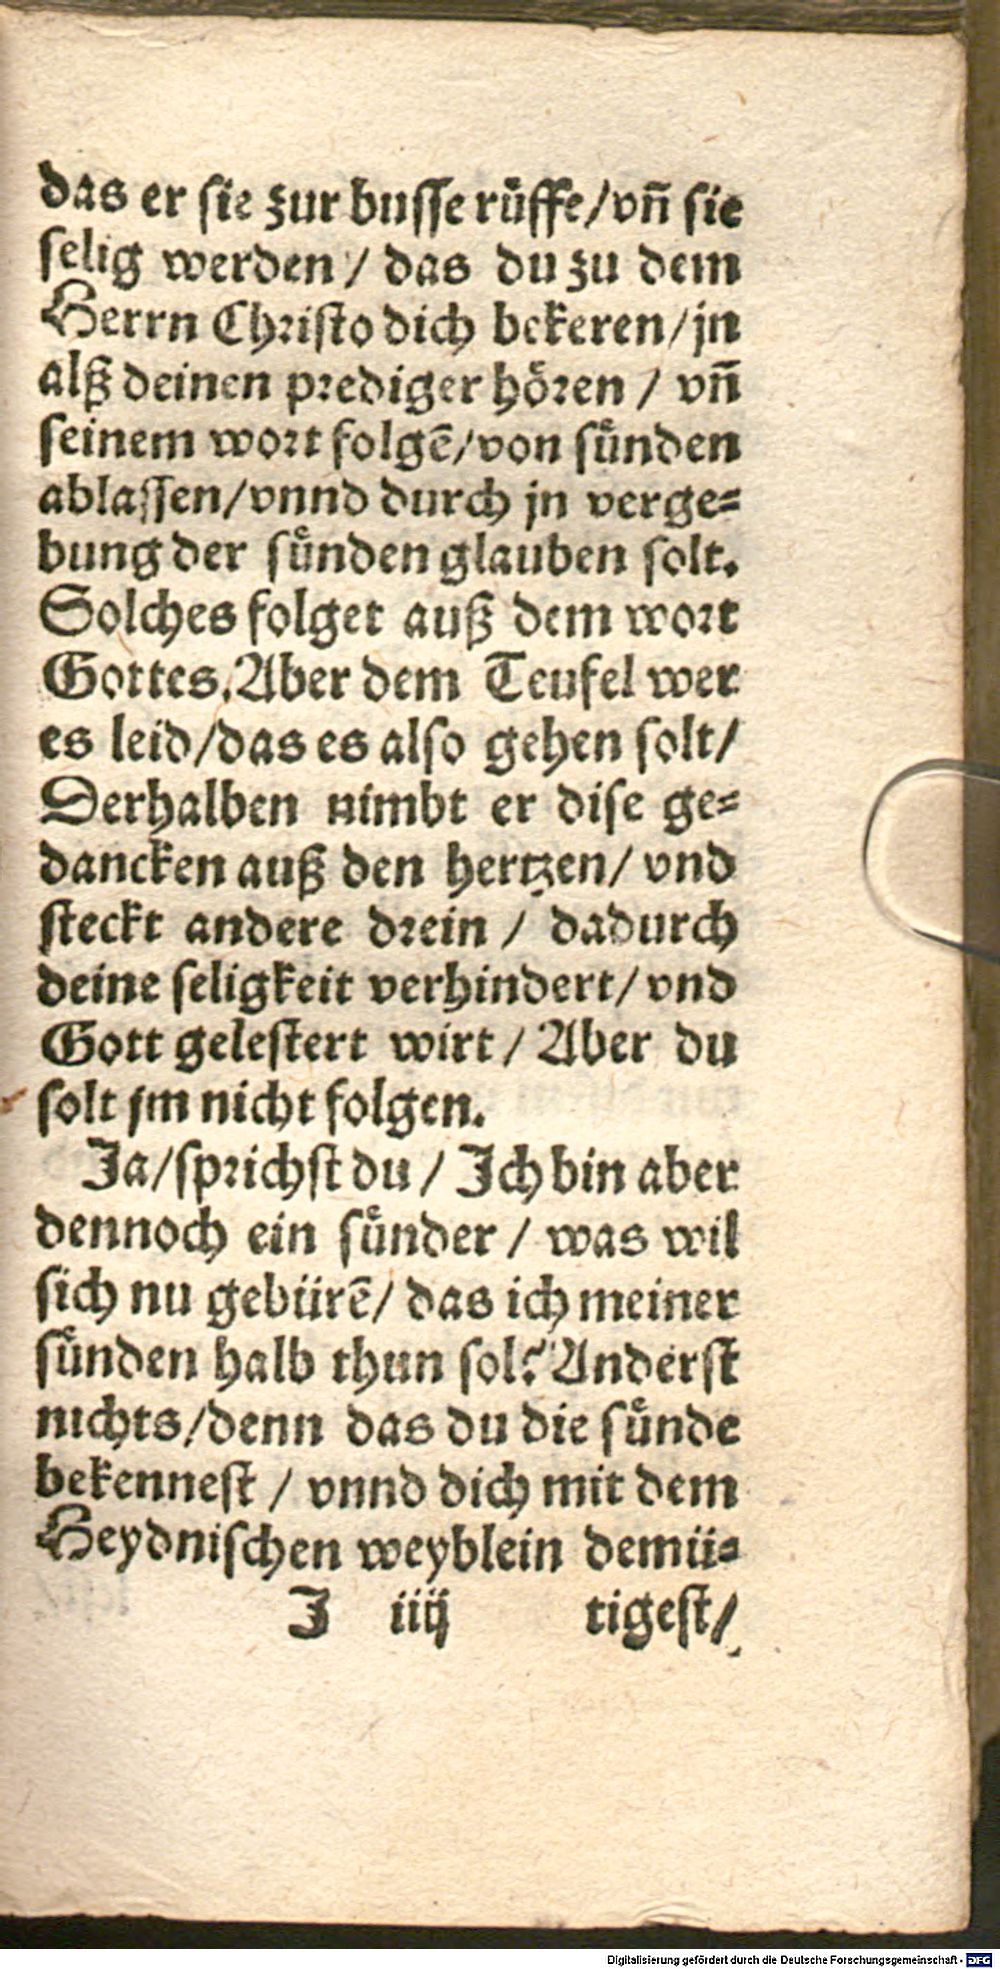 das er sie zur busse růffe/vñ sie
selig werden/ das du zu dem
Herrn Christo dich bekeren/jn
alß deinen prediger hören / vñ
seinem wort folgē/von sůnden
ablassen/vnnd durch jn verge-
bung der sůnden glauben solt.
Solches folget auß dem wort
Gottes. Aber dem Teufel wer
es leid/das es also gehen solt/
Derhalben nimbt er dise ge-
dancken auß den hertzen/ vnd
steckt andere drein / dadurch
deine seligkeit verhindert/ vnd
Gott gelestert wirt / Aber du
solt jm nicht folgen.
Ja/sprichst du / Ich bin aber
dennoch ein sůnder / was wil
sich nu gebürē/ das ich meiner
sůnden halb thun sol? Anderst
nichts/denn das du die sůnde
bekennest / vnnd dich mit dem
Heydnischen weyblein demü-
J iiij tigest/
Digitalisierung gefördert durch die Deutsche Forschungsgemeinschaft - DFG